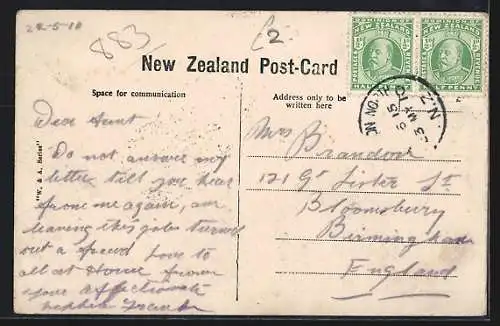 22-5-10
883
£2
DOMINION OF NEW ZEALAND
POSTAGE & REVENUE
HALF PENNY
New Zealand Post-Card
Space for communication
Address only to be
written here
"W. & A. Series"
Dear Aunt
Do not answer my
letter till you hear
frome me again, am
leaving this
out a Love to
all at Home from
your affectionate
nephew Frank
N.Z.
Mrs
Brandon
121 Gt Lister St
Bloomsbury
Birmingham
England